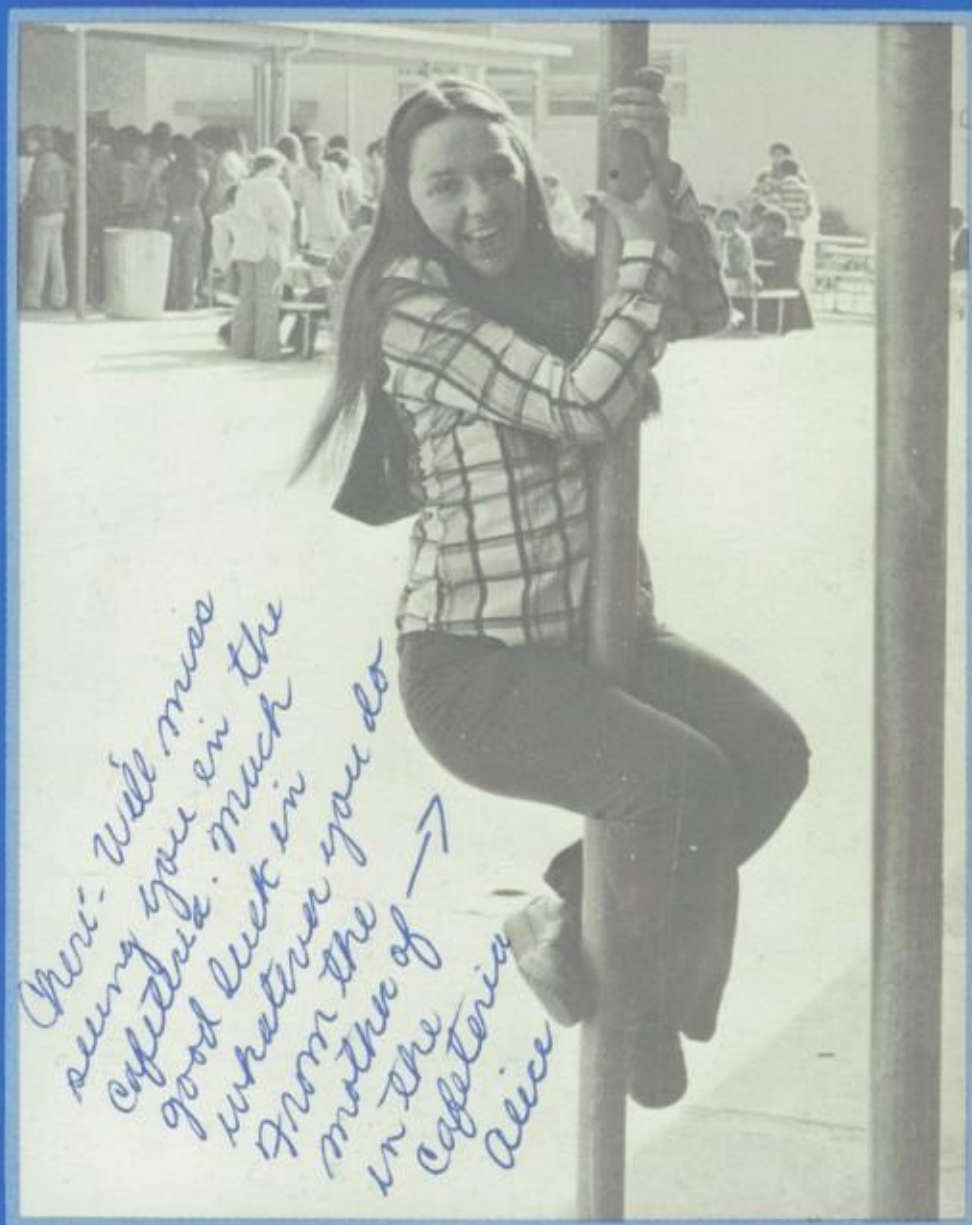 Cheri - Will miss
seeing you in the
cafeteria. Much
good luck in
whatever you do
From the
mother of →
in the
cafeteria
Alice